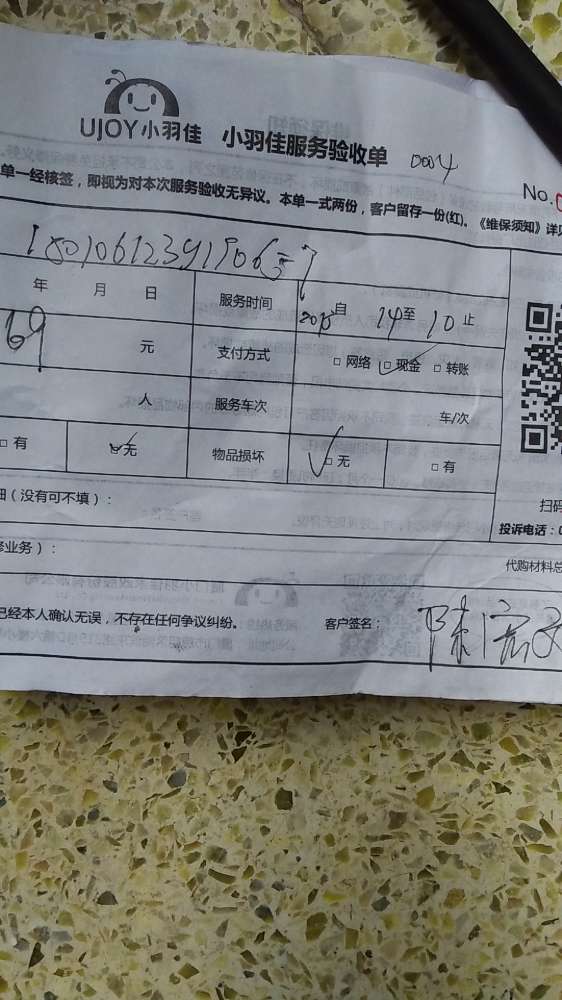 UJOY小羽佳 小羽佳服务验收单 0004
No.0
单一经核签，即视为对本次服务验收无异议。本单一式两份，客户留存一份(红)。《维保须知》详见
年 月 日 服务时间 自 14至 10止
69 元 支付方式 □ 网络 □ 现金 □ 转账
人 服务车次 车/次
□ 有 □ 无 物品损坏 □ 无 □ 有
细（没有可不填）：
扫码
投诉电话：0
修业务）：
代购材料总
已经本人确认无误，不存在任何争议纠纷。 客户签名：